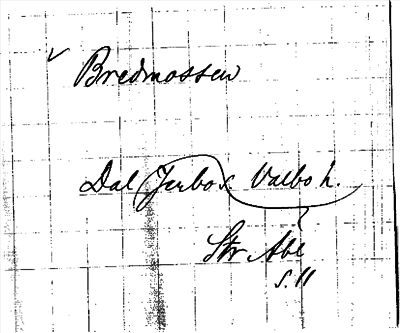 ✓ Bredmossen
Dal Jerbo x. Valbo h.
Str Abl
S. 11